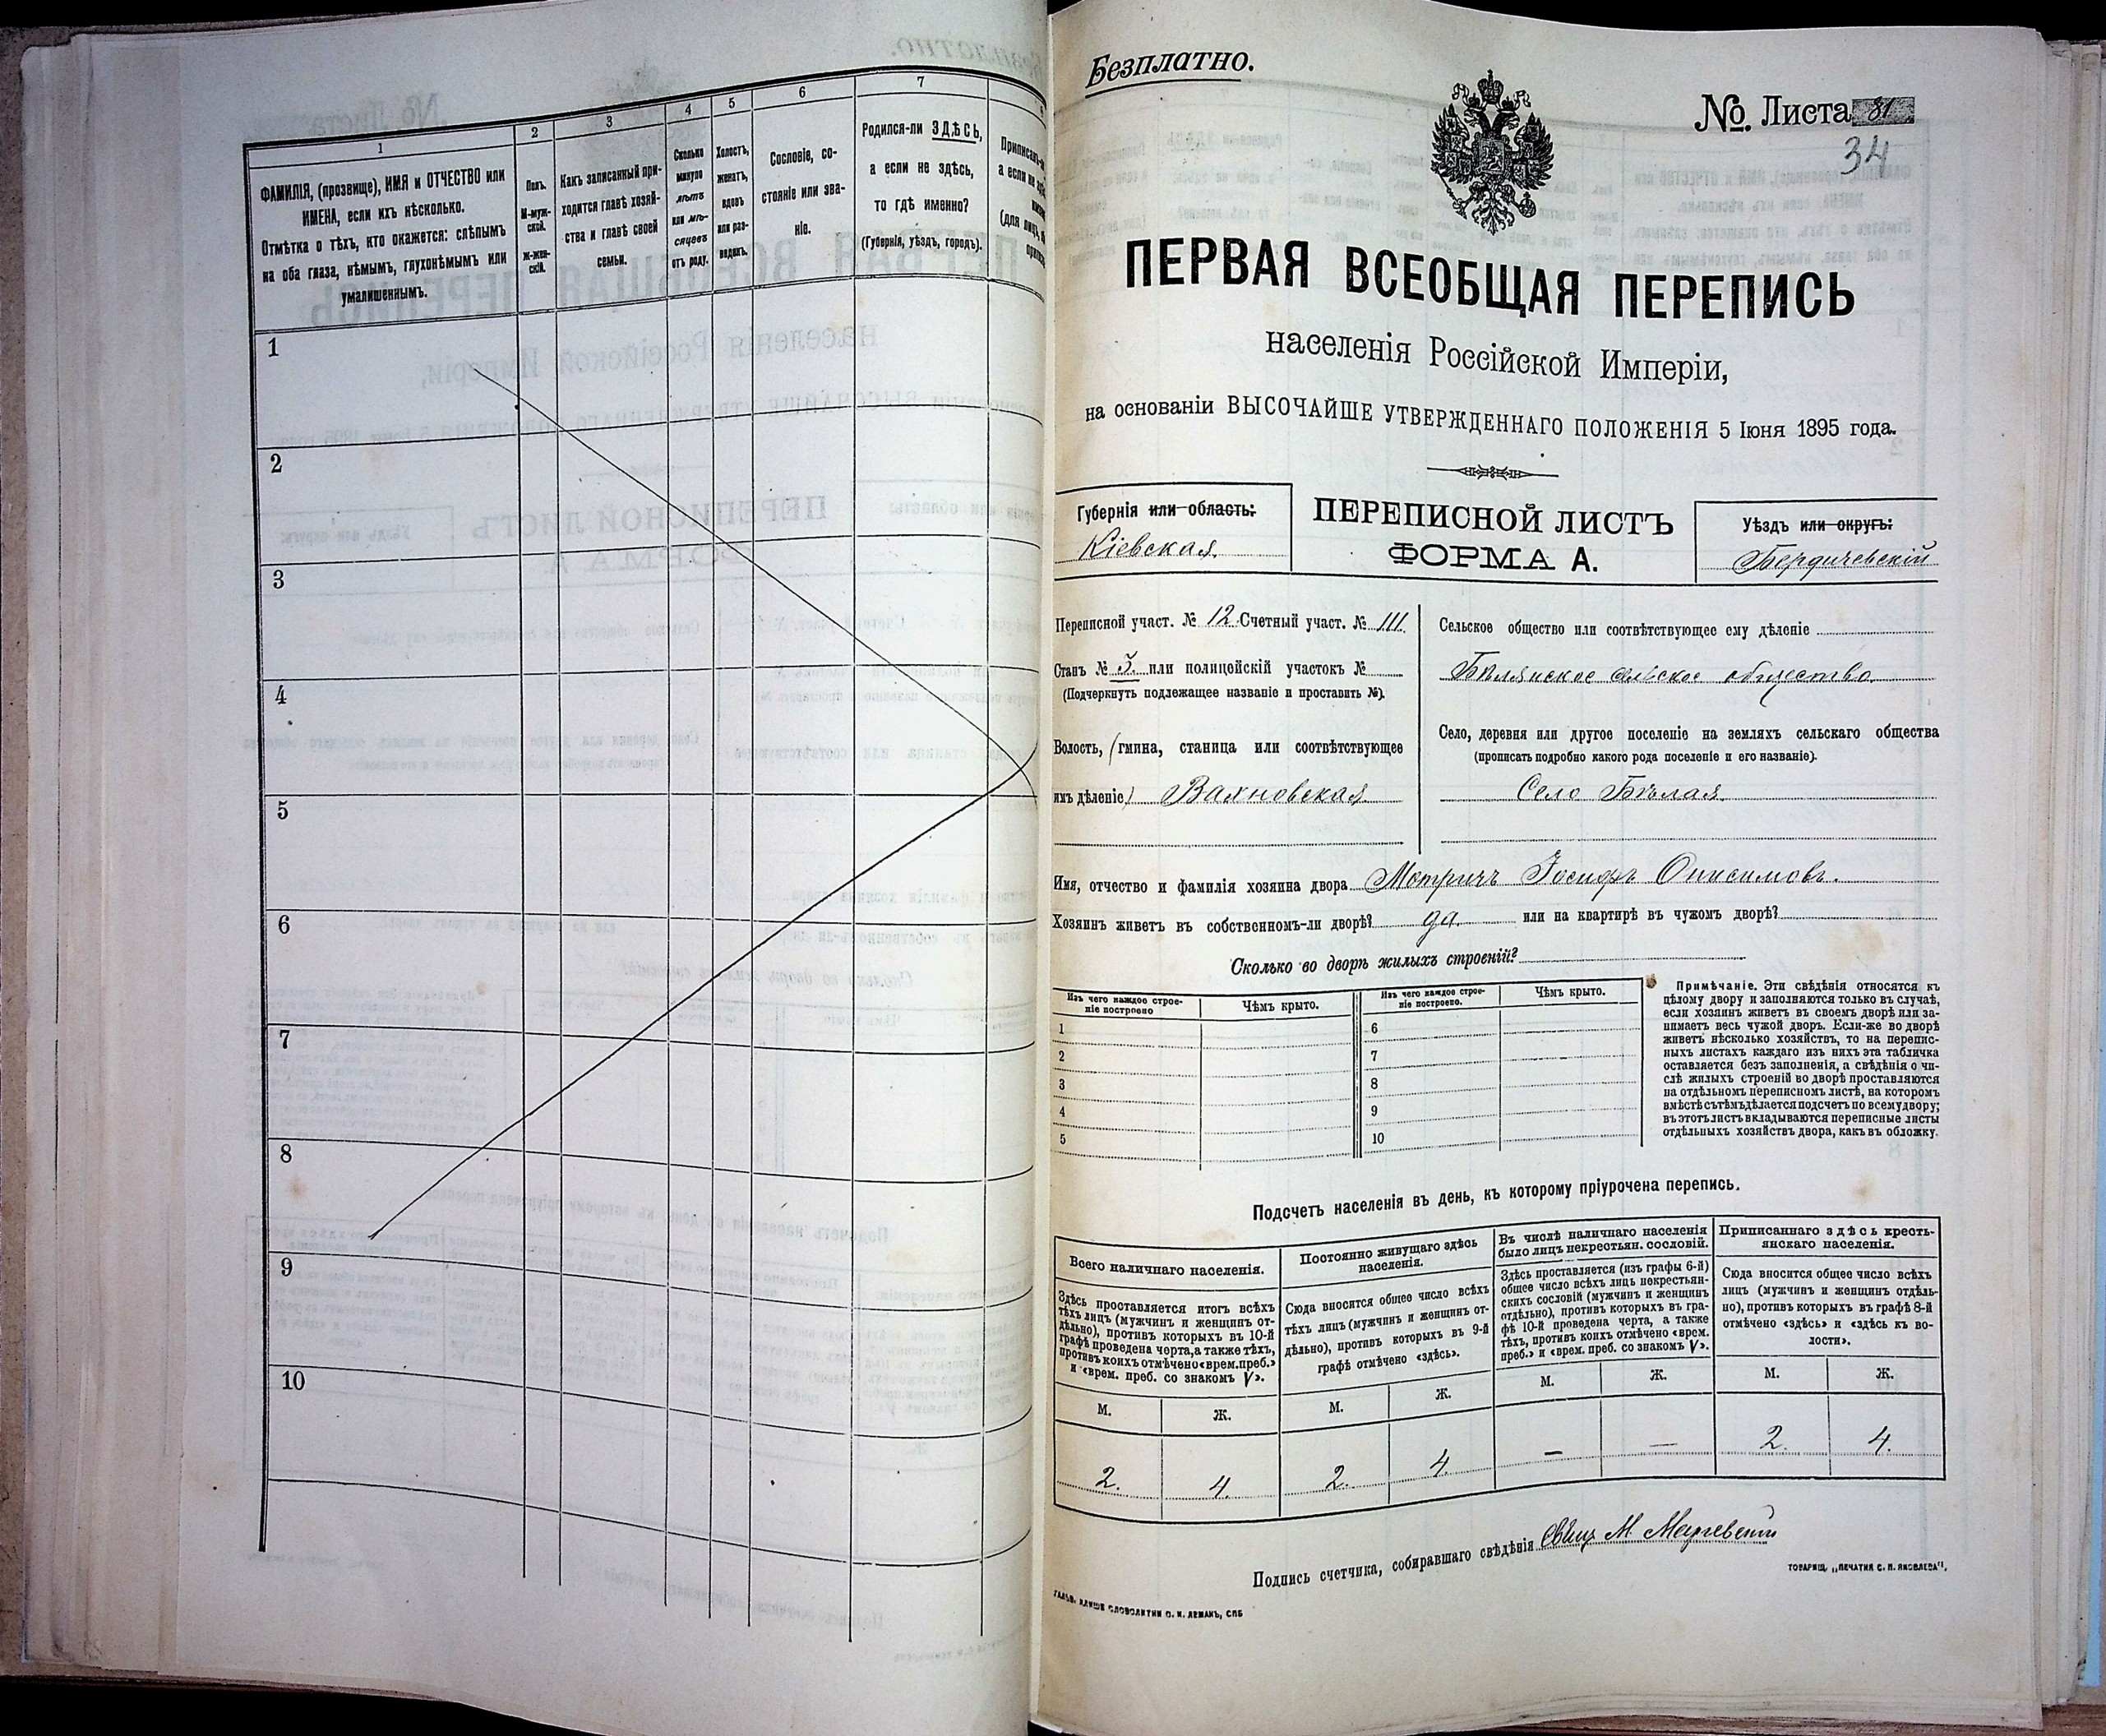 1
2
3
4
5
6
7
ФАМИЛІЯ, (прозвище), ИМЯ и ОТЧЕСТВО или
ИМЕНА, если ихъ нѣсколько.
Отмѣтка о тѣхъ, кто окажется: слѣпымъ
на оба глаза, нѣмымъ, глухонѣмымъ или
умалишеннымъ.
Полъ.
М-муж-
ской.
ж-жен-
скій.
Какъ записанный при-
ходится главѣ хозяй-
ства и главѣ своей
семьи.
Сколько
минуло
лѣтъ
или мѣ-
сяцевъ
отъ роду.
Холостъ,
женатъ,
вдовъ
или раз-
веденъ.
Сословіе, со-
стояніе или зва-
ніе.
Родился-ли ЗДѢСЬ,
а если не здѣсь,
то гдѣ именно?
(Губернія, уѣздъ, городъ).
1
2
3
4
5
6
7
8
9
10
Безплатно.
№. Листа 81
34
ПЕРВАЯ ВСЕОБЩАЯ ПЕРЕПИСЬ
населенія Россійской Имперіи,
на основаніи ВЫСОЧАЙШЕ УТВЕРЖДЕННАГО ПОЛОЖЕНІЯ 5 Іюня 1895 года.
Губернія или область:
Кіевская.
ПЕРЕПИСНОЙ ЛИСТЪ
ФОРМА А.
Уѣздъ или округъ:
Бердичевскій
Переписной участ. № 12. Счетный участ. № III.
Станъ № 5. или полицейскій участокъ №
(Подчеркнуть подлежащее названіе и проставить №).
Волость, (гмина, станица или соотвѣтствующее
имъ дѣленіе) Вахновская.
Сельское общество или соотвѣтствующее ему дѣленіе
Бѣлянское сельское общество.
Село, деревня или другое поселеніе на земляхъ сельскаго общества
(прописать подробно какого рода поселеніе и его названіе).
Село Бѣлая.
Имя, отчество и фамилія хозяина двора Мотричъ Іосифъ Онисимовъ.
Хозяинъ живетъ въ собственномъ-ли дворѣ? да. или на квартирѣ въ чужомъ дворѣ?
Сколько во дворѣ жилыхъ строеній?
Изъ чего каждое строе-
ніе построено
Чѣмъ крыто.
Изъ чего каждое строе-
ніе построено.
Чѣмъ крыто.
1
2
3
4
5
6
7
8
9
10
Примѣчаніе. Эти свѣдѣнія относятся къ
цѣлому двору и заполняются только въ случаѣ,
если хозяинъ живетъ въ своемъ дворѣ или за-
нимаетъ весь чужой дворъ. Если-же во дворѣ
живетъ нѣсколько хозяйствъ, то на перепис-
ныхъ листахъ каждаго изъ нихъ эта табличка
оставляется безъ заполненія, а свѣдѣнія о чи-
слѣ жилыхъ строеній во дворѣ проставляются
на отдѣльномъ переписномъ листѣ, на которомъ
вмѣстѣ съ тѣмъ дѣлается подсчетъ по всему двору;
въ этотъ листъ вкладываются переписные листы
отдѣльныхъ хозяйствъ двора, какъ въ обложку.
Подсчетъ населенія въ день, къ которому пріурочена перепись.
Всего наличнаго населенія.
Здѣсь проставляется итогъ всѣхъ
тѣхъ лицъ (мужчинъ и женщинъ от-
дѣльно), противъ которыхъ въ 10-й
графѣ проведена черта, а также тѣхъ,
противъ коихъ отмѣчено «врем. преб.»
и «врем. преб. со знакомъ V».
Постоянно живущаго здѣсь
населенія.
Сюда вносится общее число всѣхъ
тѣхъ лицъ (мужчинъ и женщинъ от-
дѣльно), противъ которыхъ въ 9-й
графѣ отмѣчено «здѣсь».
Въ числѣ наличнаго населенія
было лицъ некрестьян. сословій.
Здѣсь проставляется (изъ графы 6-й)
общее число всѣхъ лицъ некрестьян-
скихъ сословій (мужчинъ и женщинъ
отдѣльно), противъ которыхъ въ гра-
фѣ 10-й проведена черта, а также
тѣхъ, противъ коихъ отмѣчено «врем.
преб.» и «врем. преб. со знакомъ V».
Приписаннаго здѣсь кресть-
янскаго населенія.
Сюда вносится общее число всѣхъ
лицъ (мужчинъ и женщинъ отдѣль-
но), противъ которыхъ въ графѣ 8-й
отмѣчено «здѣсь» и «здѣсь къ во-
лости».
М. Ж. М. Ж. М. Ж. М. Ж.
2. 4. 2. 4. — — 2. 4.
Подпись счетчика, собиравшаго свѣдѣнія М.
ТОВАРИЩ. „ПЕЧАТНЯ С. П. ЯКОВЛЕВА",
СЛОВОЛИТНИ О. И. ЛЕМАНЪ, СПБ